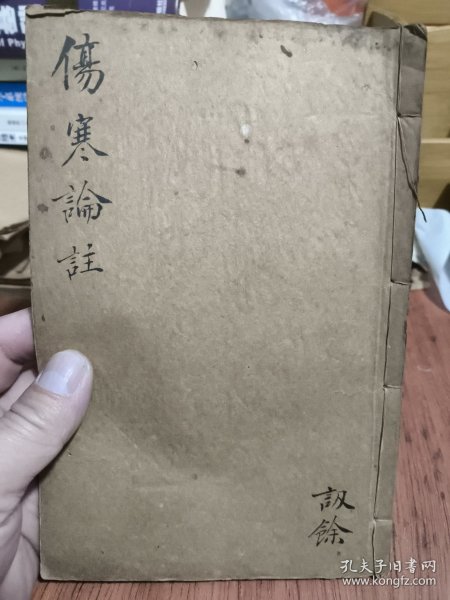 傷寒論註
餘
孔夫子旧书网
www.kongfz.com